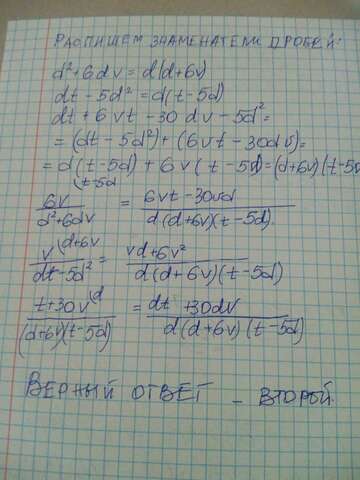 РАСПИШЕМ ЗНАМЕНАТЕЛИ ДРОБЕЙ:
d²+6dv = d(d+6v)
dt - 5d² = d(t-5d)
dt + 6vt - 30dv - 5d² =
= (dt - 5d²) + (6vt - 30dv) =
= d(t-5d) + 6v(t-5d) = (d+6v)(t-5
6v (t-5d / d²+6dv = 6vt-30vd / d(d+6v)(t-5d)
v (d+6v / dt-5d² = vd+6v² / d(d+6v)(t-5d)
t+30v (d / (d+6v)(t-5d) = dt+30dv / d(d+6v)(t-5d)
ВЕРНЫЙ ОТВЕТ - ВТОРОЙ.